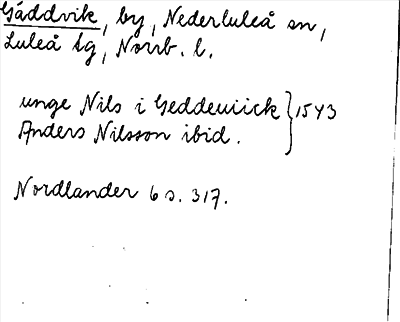 Gäddvik, by, Nederluleå sn,
Luleå tg, Norrb. l.
unge Nils i Geddeuiick } 1543
Anders Nilsson ibid.
Nordlander 6 s. 317.